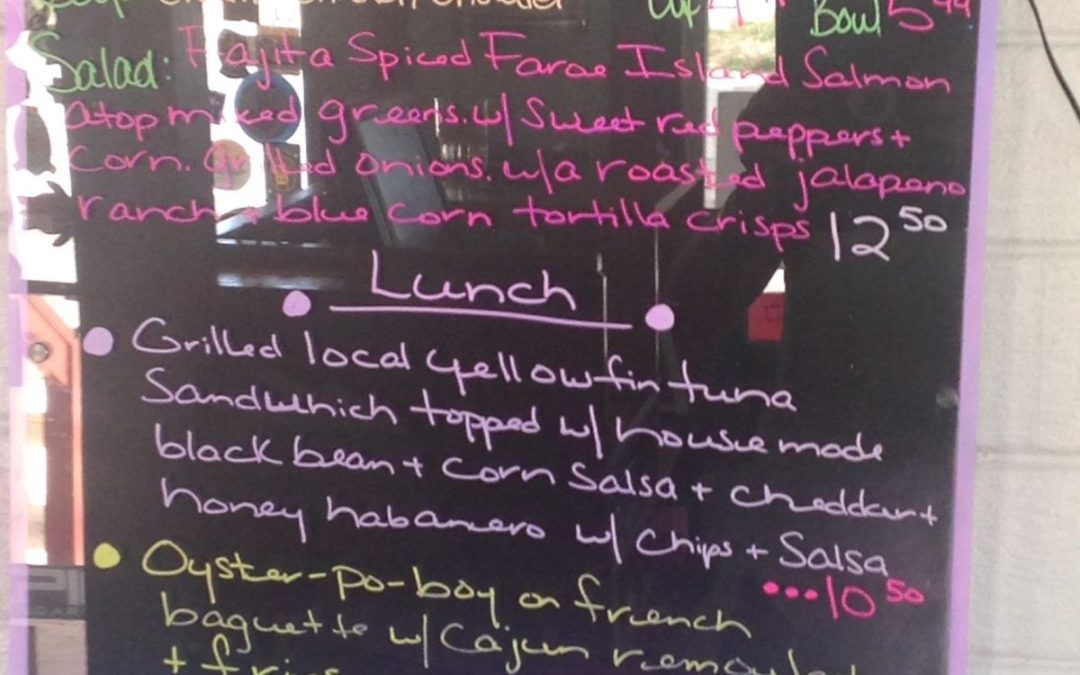 Cup 4 Bowl 5
Salad: Fajita Spiced Faroe Island Salmon
atop mixed greens. w/ Sweet red peppers +
Corn. Grilled onions. w/a roasted jalapeno
ranch + blue corn tortilla crisps 12 50
Lunch
• Grilled local yellowfin tuna
Sandwhich topped w/ house made
black bean + corn Salsa + cheddar +
honey habanero w/ chips + Salsa
...10 50
• Oyster-po-boy on french
baguette w/ Cajun
+ fries